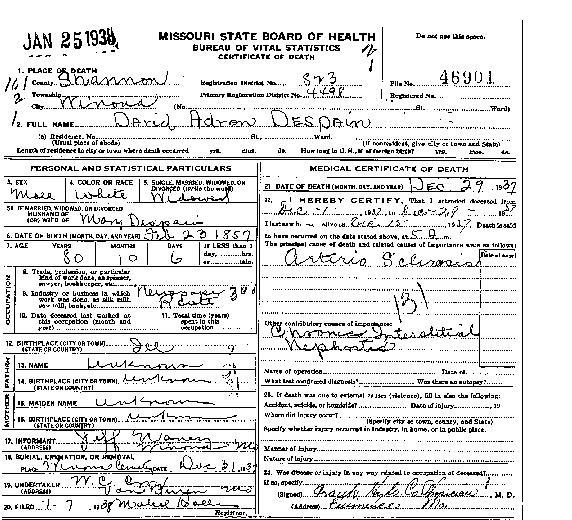 JAN 25 1938
MISSOURI STATE BOARD OF HEALTH
BUREAU OF VITAL STATISTICS
CERTIFICATE OF DEATH
Do not use this space.
1. PLACE OF DEATH
County Shannon Registration District No. 823 File No. 46901
Township Primary Registration District No. 4498 Registered No.
City Winona (No. St. Ward)
2. FULL NAME David Adron DESPAIN
(a) Residence, No. St. Ward.
(Usual place of abode) (If nonresident, give city or town and State)
Length of residence in city or town where death occurred yrs. mos. ds. How long in U. S., if of foreign birth? yrs. mos. ds.
PERSONAL AND STATISTICAL PARTICULARS
3. SEX Male
4. COLOR OR RACE White
5. SINGLE, MARRIED, WIDOWED, OR DIVORCED (write the word) Widowed
5a. IF MARRIED, WIDOWED, OR DIVORCED
HUSBAND OF
(OR) WIFE OF Mary Despain
6. DATE OF BIRTH (MONTH, DAY, AND YEAR) Feb 23 1857
7. AGE YEARS 80 MONTHS 10 DAYS 6 IF LESS than 1 day, hrs. or min.
OCCUPATION
8. Trade, profession, or particular kind of work done, as spinner, sawyer, bookkeeper, etc.
9. Industry or business in which work was done, as silk mill, saw mill, bank, etc. Newspaper
10. Date deceased last worked at this occupation (month and year)
11. Total time (years) spent in this occupation
12. BIRTHPLACE (CITY OR TOWN)
(STATE OR COUNTRY) Ill
FATHER
13. NAME Unknown
14. BIRTHPLACE (CITY OR TOWN) Unknown
(STATE OR COUNTRY)
MOTHER
15. MAIDEN NAME Unknown
16. BIRTHPLACE (CITY OR TOWN)
(STATE OR COUNTRY)
17. INFORMANT
(ADDRESS) Winona Mo
18. BURIAL, CREMATION, OR REMOVAL
PLACE DATE Dec 31 1937
19. UNDERTAKER W. C.
(ADDRESS) Van Buren Mo
20. FILED 1-7 1938
Registrar.
MEDICAL CERTIFICATE OF DEATH
21. DATE OF DEATH (MONTH, DAY, AND YEAR) Dec 29 1937
22. I HEREBY CERTIFY, That I attended deceased from
Dec-1 1937, to Dec-29- 1937
I last saw h alive on 1937. Death is said
to have occurred on the date stated above, at
The principal cause of death and related causes of importance were as follows:
Date of onset
Arterio Sclerosis
131
Other contributory causes of importance:
Chronic Interstitial
Nephritis
Name of operation Date of
What test confirmed diagnosis? Was there an autopsy?
23. If death was due to external causes (violence), fill in also the following:
Accident, suicide, or homicide? Date of injury , 19
Where did injury occur?
(Specify city or town, county, and State)
Specify whether injury occurred in industry, in home, or in public place.
Manner of injury
Nature of injury
24. Was disease or injury in any way related to occupation of deceased?
If so, specify
(Signed) M. D.
(Address) Mo